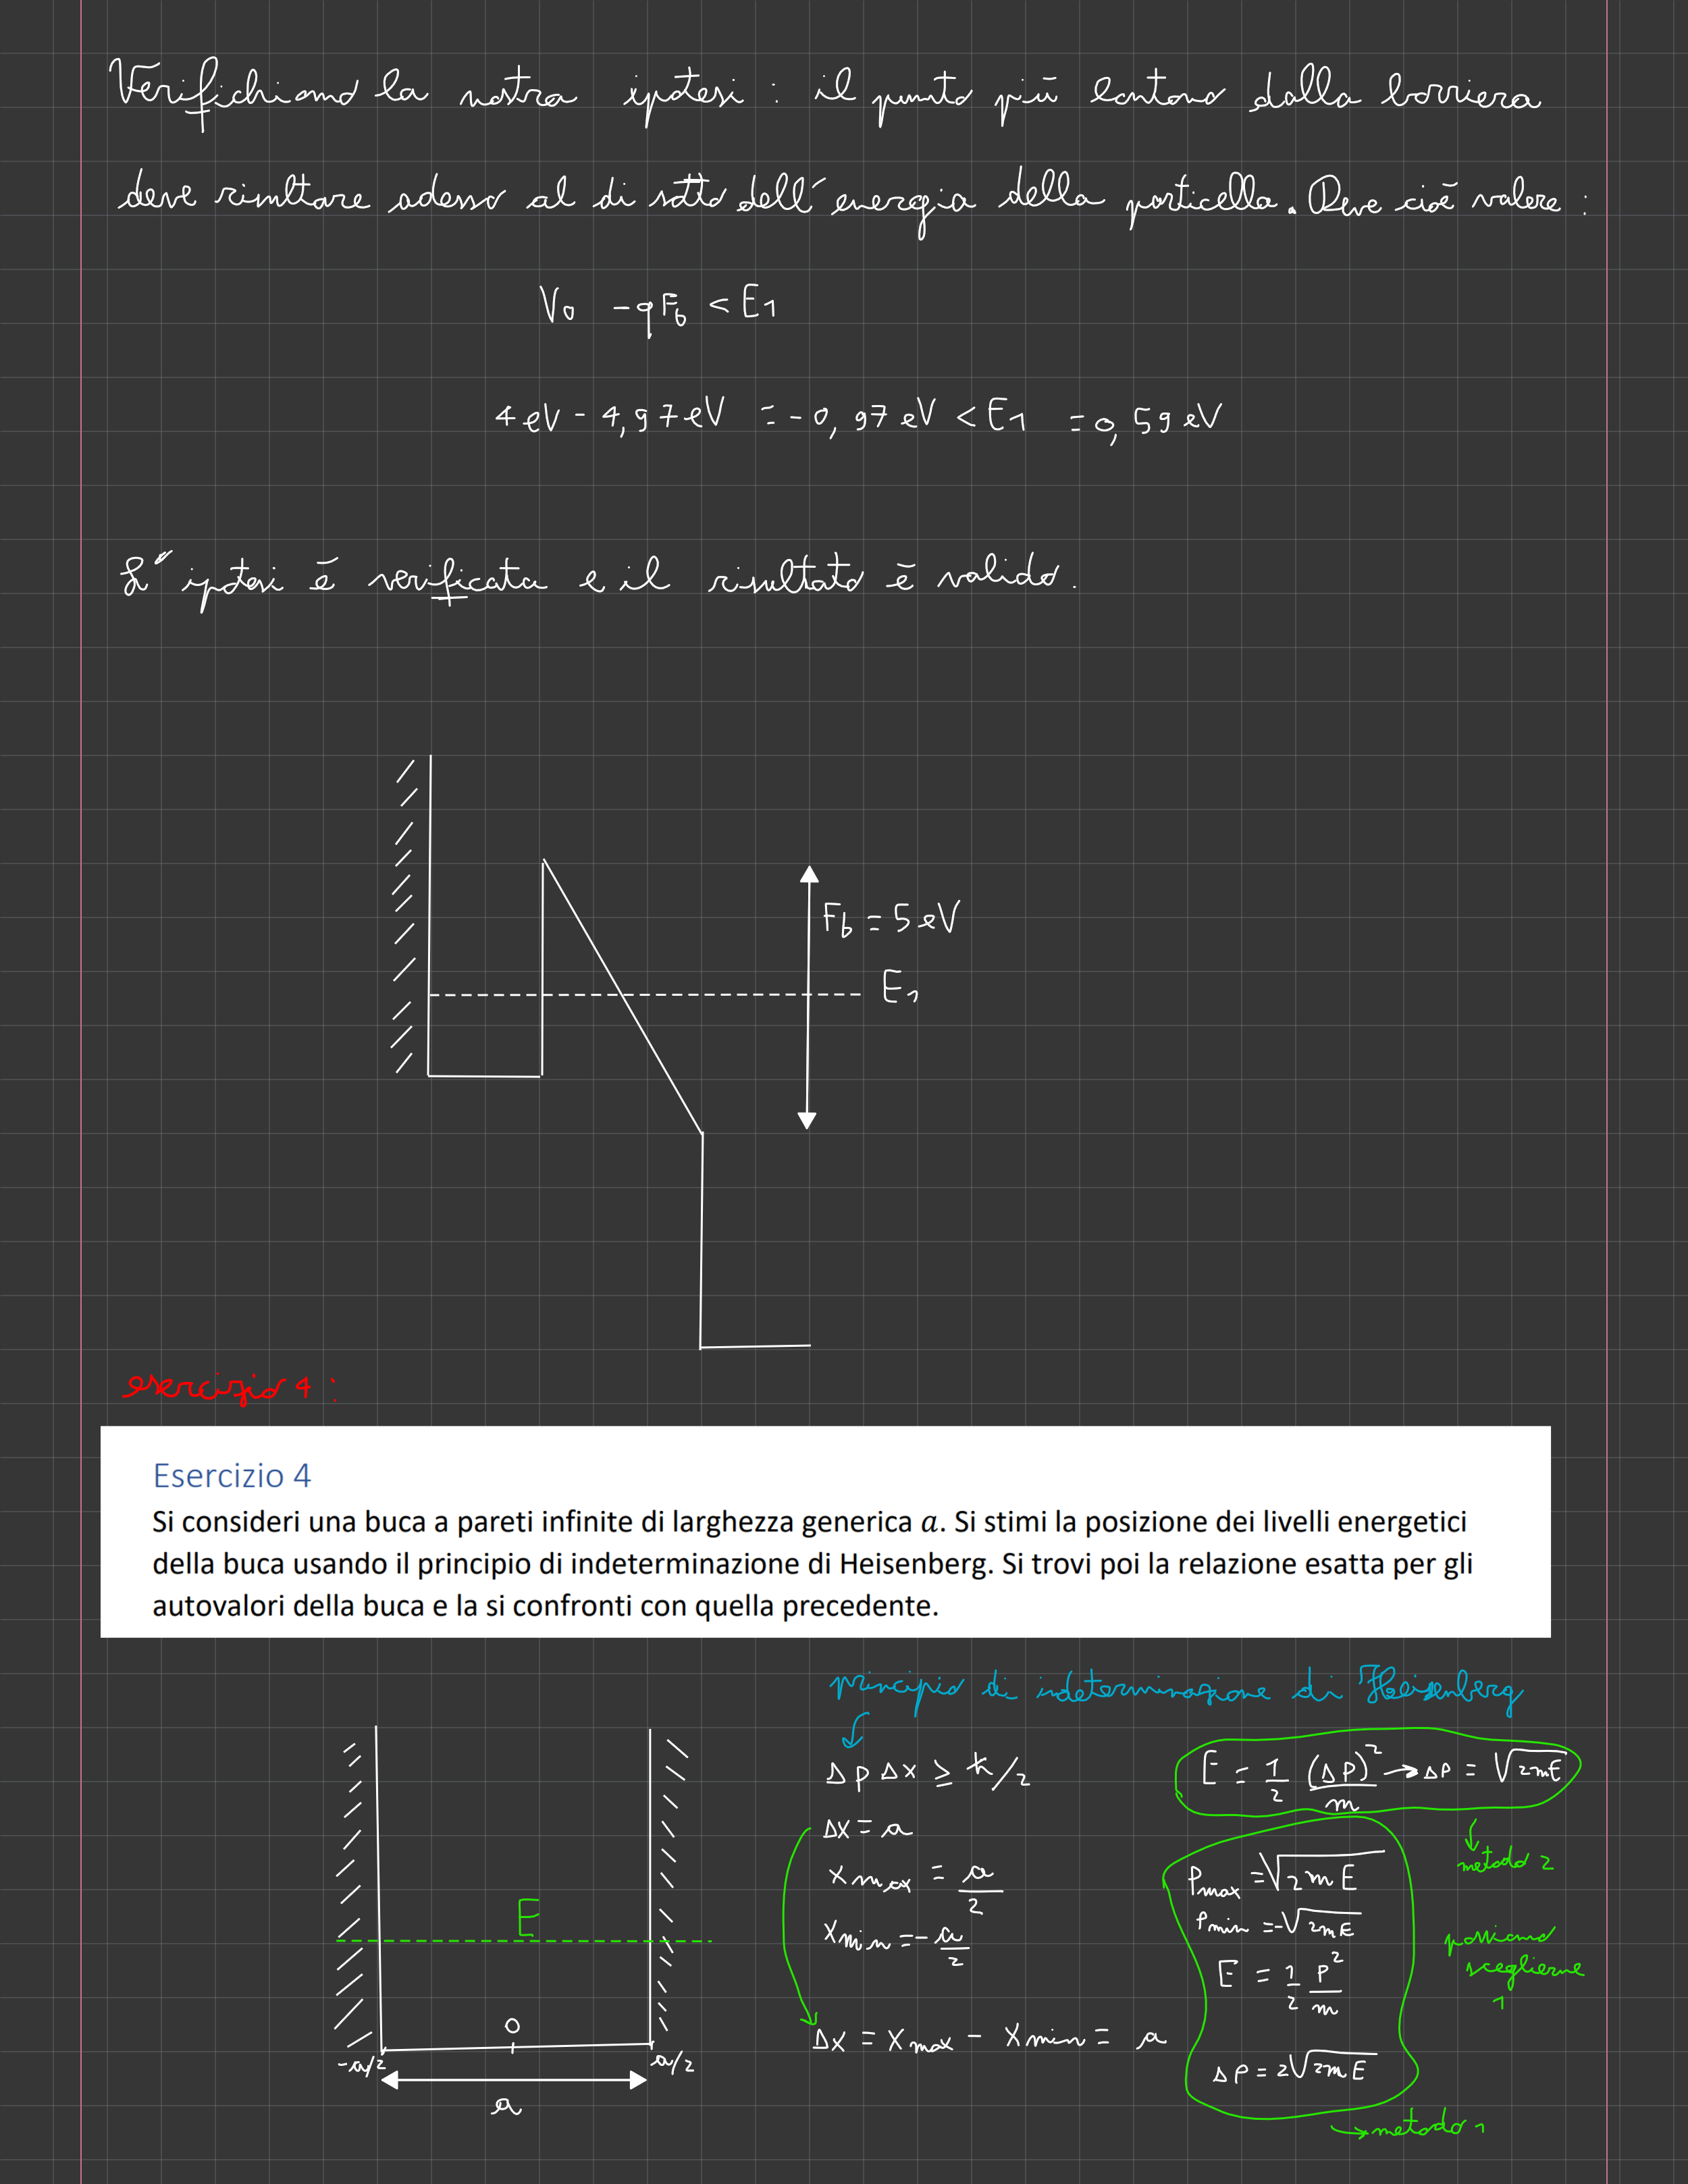 Verifichiamo la nostra ipotesi : il punto più lontano dalla barriera
deve risultare adesso al di sotto dell'energia della particella. Deve cioè valere :
V₀ - qF_b < E₁
4 eV - 4,97 eV = -0,97 eV < E₁ = 0,59 eV
L'ipotesi è verificata e il risultato è valido.
F_b = 5 eV
E₁
esercizio 4 :
Esercizio 4
Si consideri una buca a pareti infinite di larghezza generica a. Si stimi la posizione dei livelli energetici
della buca usando il principio di indeterminazione di Heisenberg. Si trovi poi la relazione esatta per gli
autovalori della buca e la si confronti con quella precedente.
principio di indeterminazione di Heisenberg
Δp Δx ≥ ħ/2
Δx = a
x_max = a/2
x_min = -a/2
Δx = x_max - x_min = a
E = 1/2 (Δp)²/m → Δp = √2mE
metodo 2
p_max = √2mE
p_min = -√2mE
E = 1/2 p²/m
Δp = 2√2mE
→ metodo 1
possiamo
sceglierne
1
E
0
-a/2
a/2
a